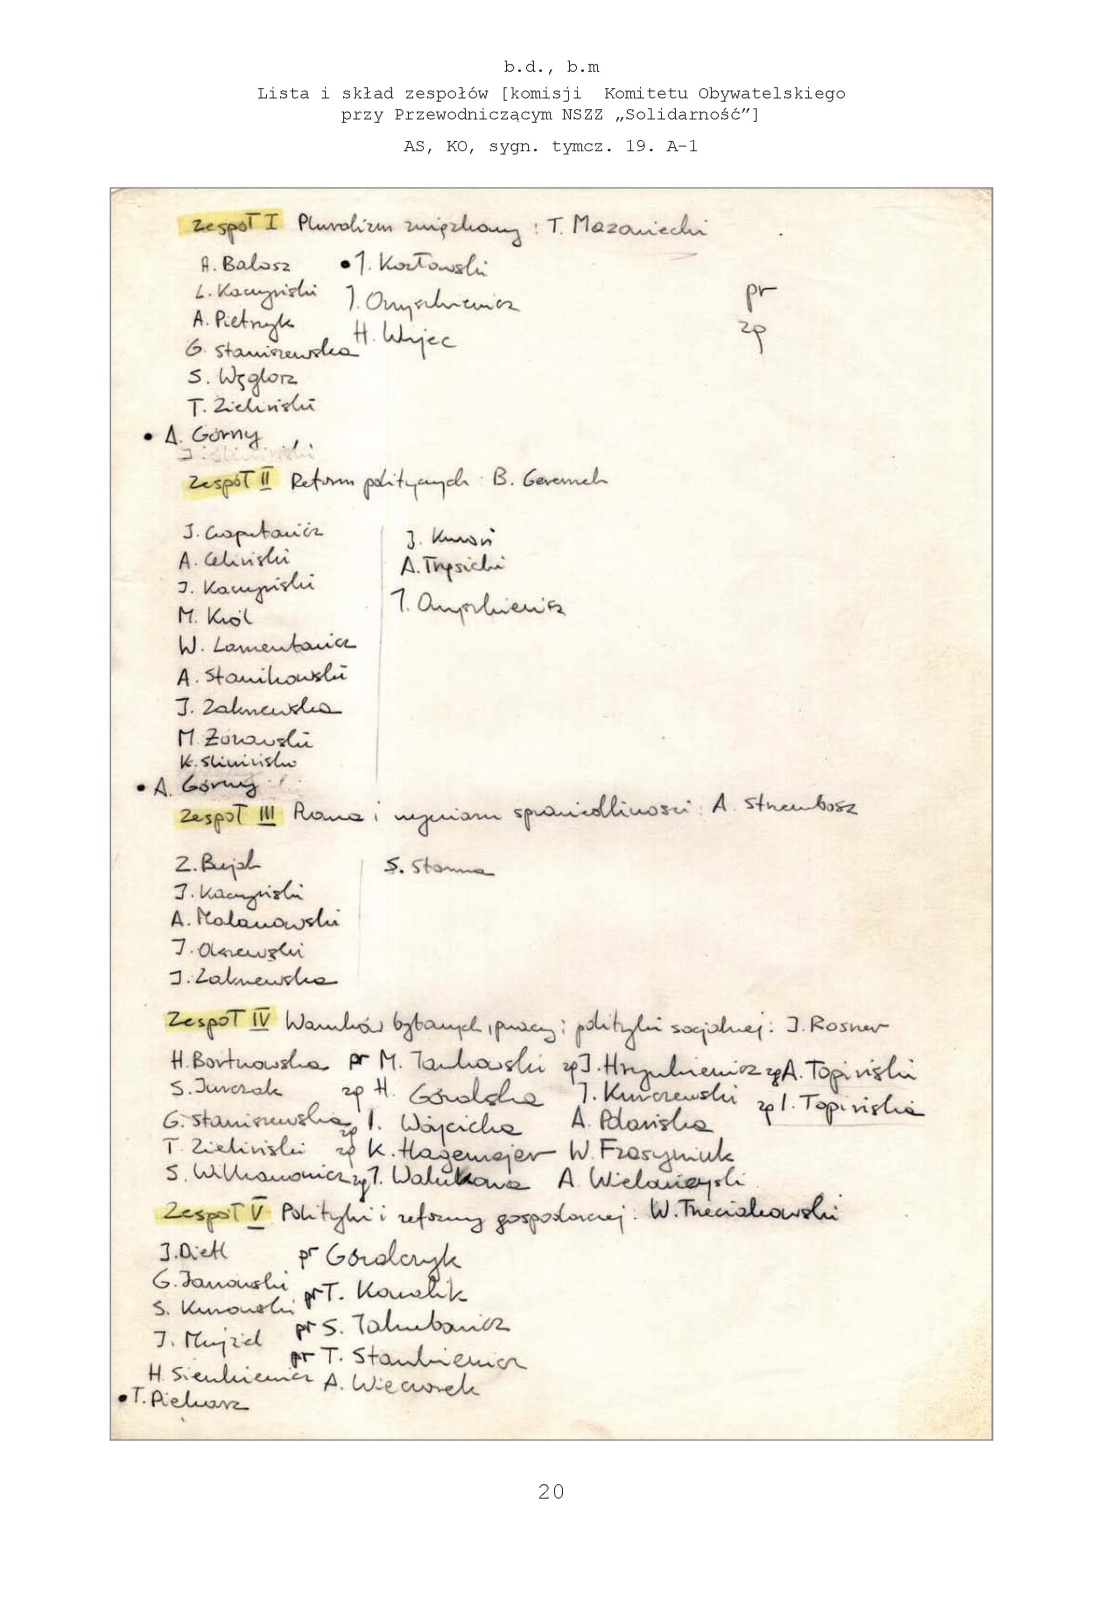 b.d., b.m
Lista i skład zespołów [komisji Komitetu Obywatelskiego
przy Przewodniczącym NSZZ „Solidarność”]
AS, KO, sygn. tymcz. 19. A-1
Zespół I Pluralizm związkowy : T. Mazowiecki
A. Balasz
L. Kaczyński
A. Pietrzyk
G. Staniszewska
S. Węglarz
T. Zieliński
• A. Górny
• J. Kozłowski
J. Onyszkiewicz
H. Wujec
pr
zp
Zespół II Reform politycznych B. Geremek
J. Ciaputowicz
A. Celiński
J. Kaczyński
M. Król
W. Lamentowicz
A. Stanikowski
J. Zakrzewska
M. Żurawski
K. Śliwiński
• A. Górny
J. Kuroń
A. Trzyciński
J. Onyszkiewicz
Zespół III Prawa i wymiaru sprawiedliwości : A. Strzembosz
Z. Bujak
J. Kaczyński
A. Malanowski
J. Olszewski
J. Zakrzewska
S. Stomma
Zespół IV Warunków bytowych, pracy i polityki socjalnej : J. Rosner
H. Bortnowska pr M. Jankowski zp J. Hrynkiewicz zp A. Topiński
S. Jurczak zp H. Góralska J. Kurczewski zp I. Topińska
G. Staniszewska zp I. Wóycicka A. Polańska
T. Zieliński zp K. Hagemejer W. Frasyniuk
S. Wilkanowicz zp J. Walukowa A. Wielowieyski
Zespół V Polityki i reformy gospodarczej : W. Trzeciakowski
J. Dietl
G. Janowski
S. Kurowski
J. Mujżel
H. Sienkiewicz
• T. Piekarz
pr Góralczyk
pr T. Kowalik
pr S. Jakubowicz
pr T. Stankiewicz
A. Wieczorek
20